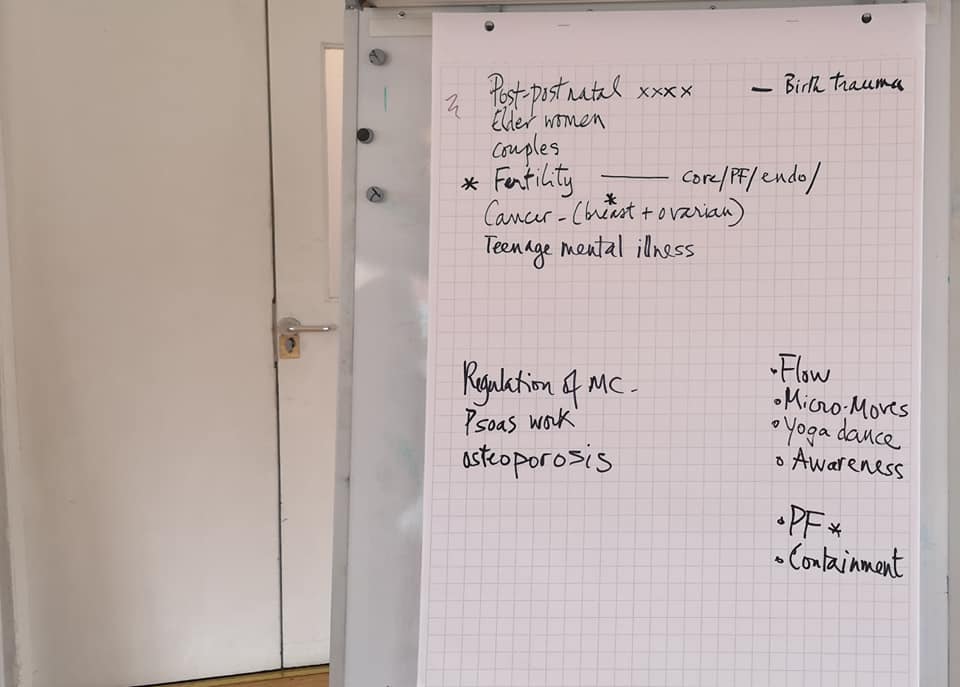 Post-postnatal xxxx — Birth trauma
Elder women
couples
* Fertility —— core/PF/endo/
Cancer - (breast* + ovarian)
Teenage mental illness
Regulation of MC -
Psoas work
osteoporosis
• Flow
• Micro-Moves
• Yoga dance
• Awareness
• PF *
• Containment